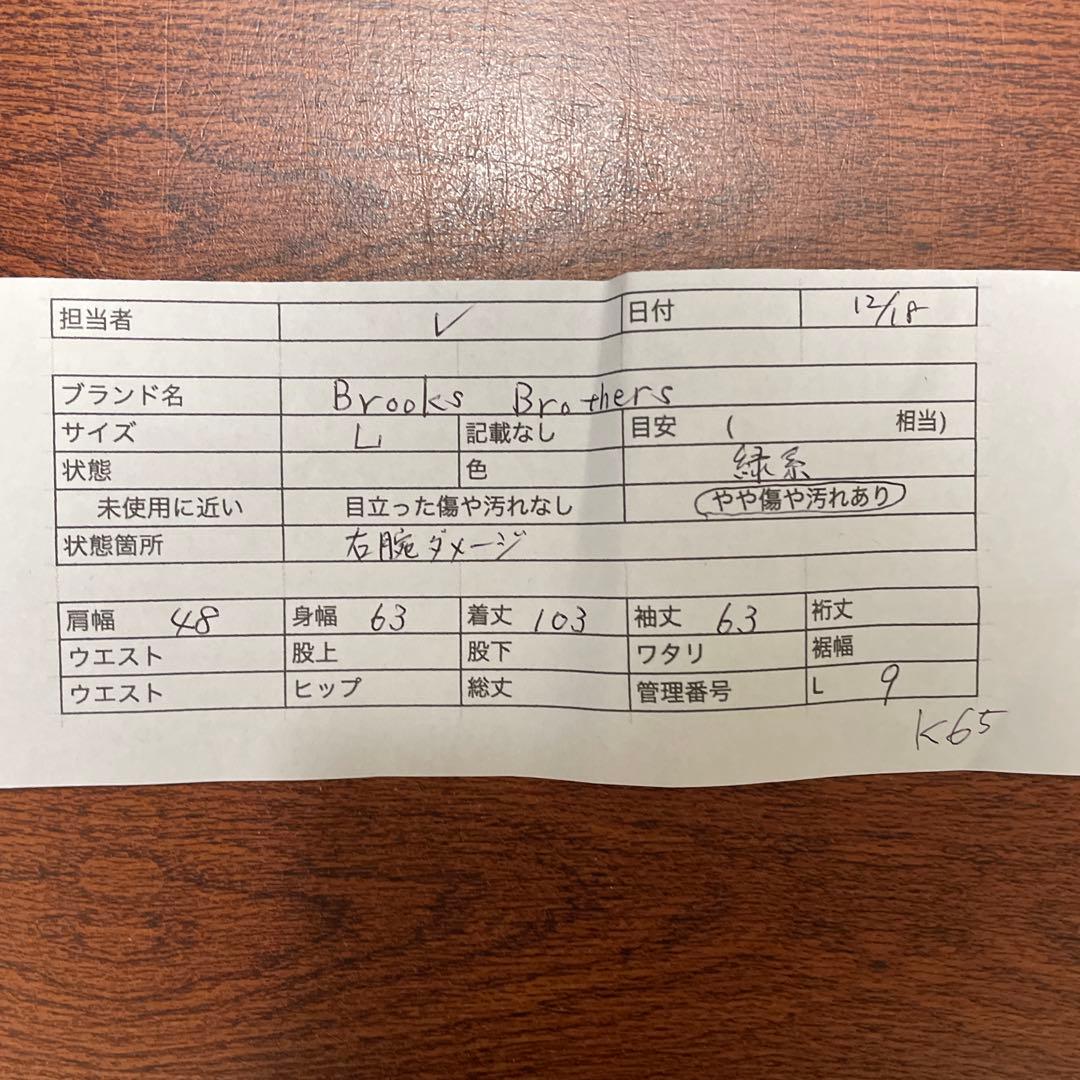 担当者 ✓ 日付 12/18
ブランド名 Brooks Brothers
サイズ L 記載なし 目安 ( 相当)
状態 色 緑系
未使用に近い 目立った傷や汚れなし やや傷や汚れあり
状態箇所 右腕ダメージ
肩幅 48 身幅 63 着丈 103 袖丈 63 裄丈
ウエスト 股上 股下 ワタリ 裾幅
ウエスト ヒップ 総丈 管理番号 L 9
K65